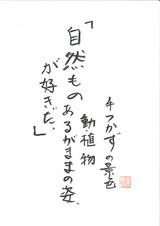 手つかずの景色
動植物
「自然ものあるがままの姿、
が好きだ。」